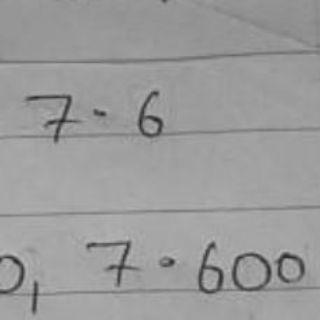 7 · 6
0, 7 · 600